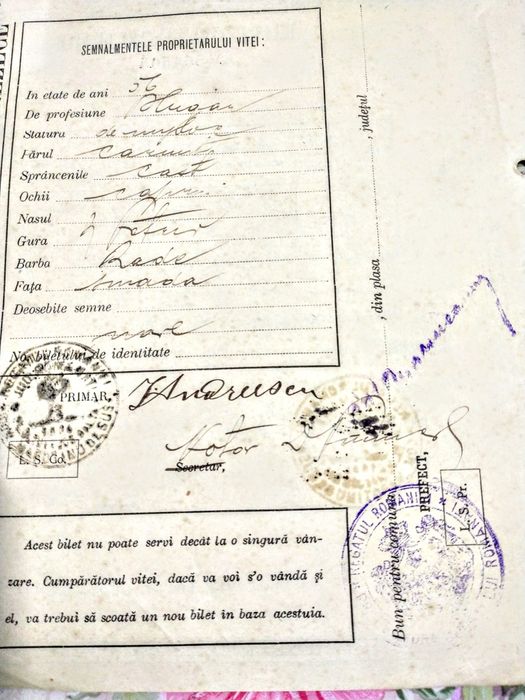 SEMNALMENTELE PROPRIETARULUI VITEI:
In etate de ani 56
De profesiune Plugar
Statura de mijloc
Părul carunt
Sprâncenile cast
Ochii caprui
Nasul
Gura potriv
Barba Rade
Fața smada
Deosebite semne
n'are
No. biletului de identitate
PRIMAR, I Andreescu
L. S. Co.
Notar
Secretar,
Acest bilet nu poate servi decât la o singură vân-
zare. Cumpărătorul vitei, dacă va voi s'o vândă și
el, va trebui să scoată un nou bilet in baza acestuia.
Bun pentru comuna , din plasa , județul
PREFECT,
L. S. Pr.
REGATUL ROMÂNIEI